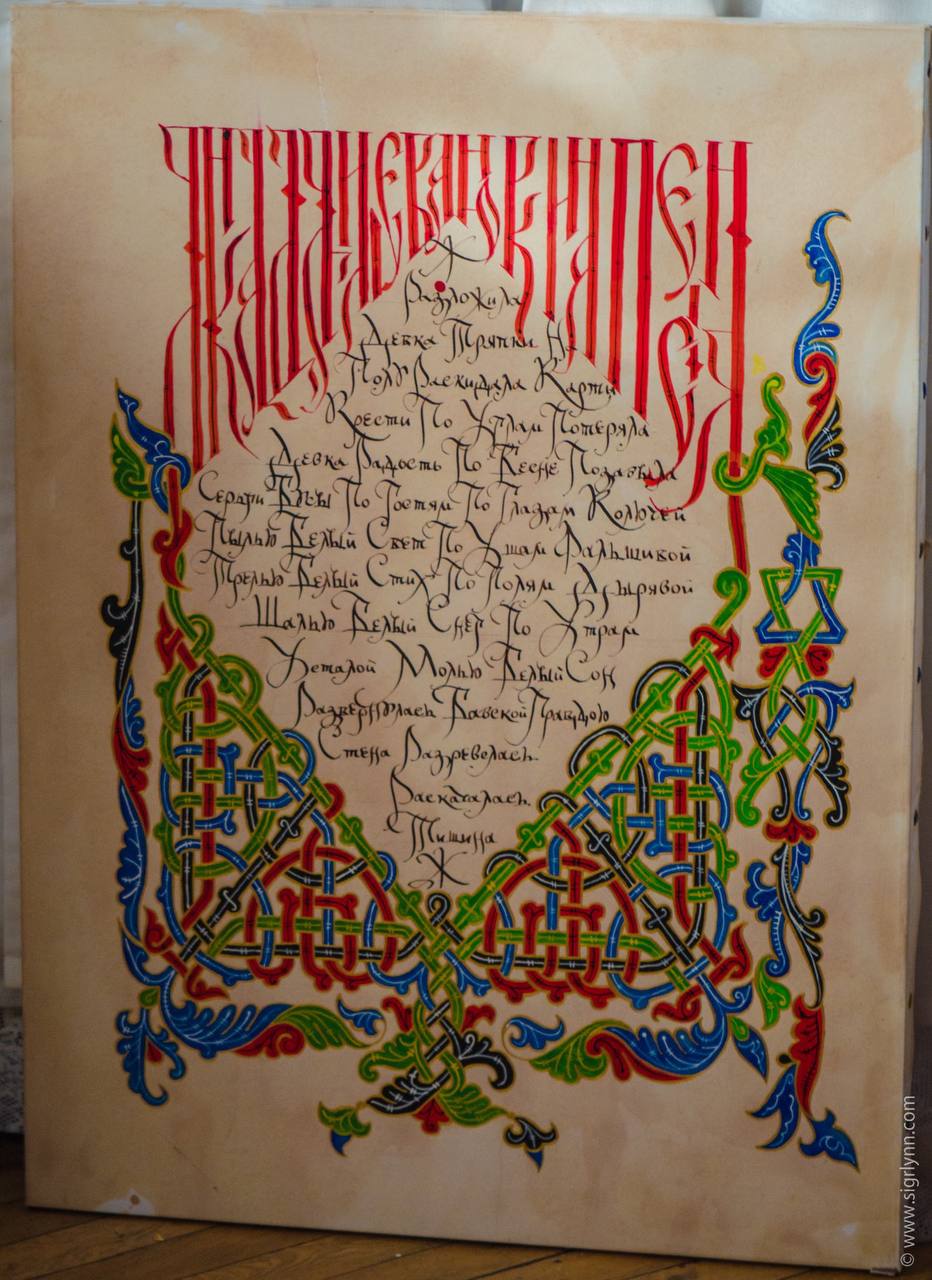 ЯНКА ДЯГИЛЕВА НЮРКИНА ПЕСНЯ
Разложила
Девка Тряпки На
Полу Раскидала Карты
Крести По Углам Потеряла
Девка Радость По Весне Позабыла
Серьги Бусы По Гостям По Глазам Колючей
Пылью Белый Свет По Ушам Фальшивой
Трелью Белый Стих По Полям Дырявой
Шалью Белый Снег По Утрам
Усталой Молью Белый Сон
Развернулась Бабской Правдою
Стена Разревелась.
Раскачалась.
Тишина
© www.sigrlynn.com